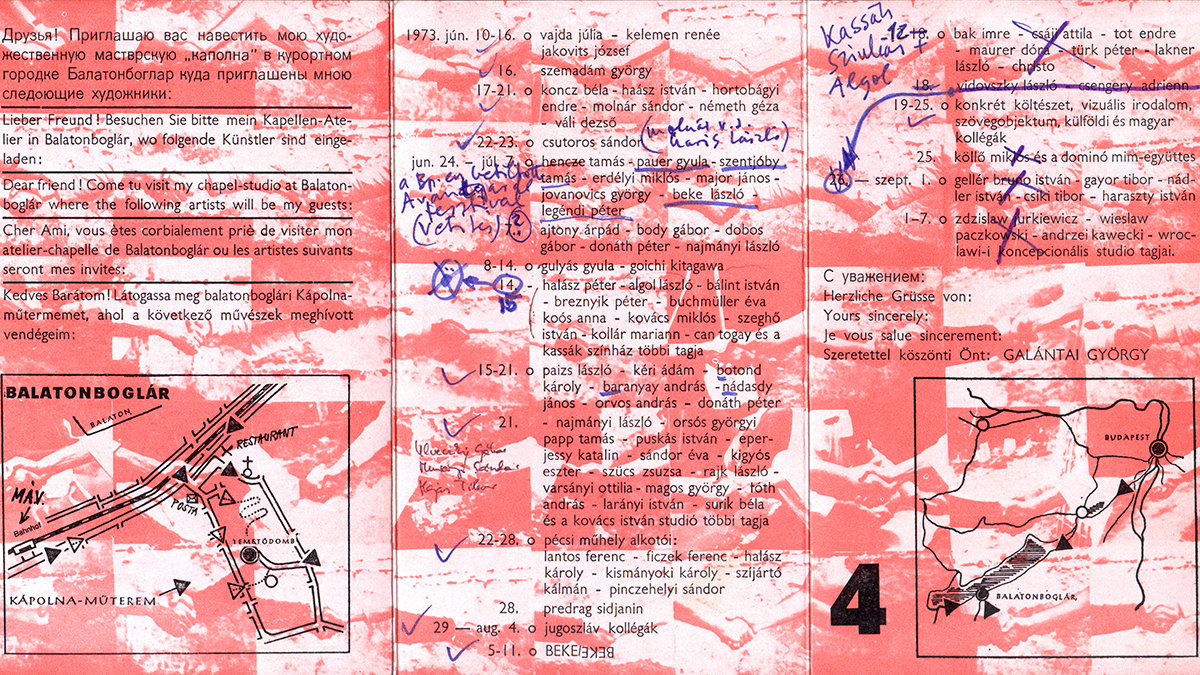 Друзья! Приглашаю вас навестить мою худо-
жественную маствркскую „каполна" в курортном
городке Балатонбоглар куда приглашены мною
следоющие художники:
Lieber Freund! Besuchen Sie bitte mein Kapellen-Ate-
lier in Balatonboglár, wo folgende Künstler sind einge-
laden:
Dear friend! Come tu visit my chapel-studio at Balaton-
boglár where the following artists will be my guests:
Cher Ami, vous ètes corbialement priè de visiter mon
atelier-chapelle de Balatonboglár ou les artistes suivants
seront mes invites:
Kedves Barátom! Látogassa meg balatonboglári Kápolna-
műtermemet, ahol a következő művészek meghívott
vendégeim:
BALATONBOGLÁR
BALATON
RESTAURANT
MÁV.
Bahnhof
POSTA
TEMETŐDOMB
KÁPOLNA-MŰTEREM
1973. jún. 10-16. o vajda júlia - kelemen renée
jakovits józsef
16. szemadám györgy
17-21. o koncz béla - haász istván - hortobágyi
endre - molnár sándor - németh géza
- váli dezső
22-23. o csutoros sándor
jun. 24. — júl. 7. o hencze tamás - pauer gyula - szentjóby
tamás - erdélyi miklós - major jános -
jovanovics györgy - beke lászló -
legéndi péter
ajtony árpád - body gábor - dobos
gábor - donáth péter - najmányi lászló
8-14. o gulyás gyula - goichi kitagawa
14. - halász péter - algol lászló - bálint istván
15
- breznyik péter - buchmüller éva
koós anna - kovács miklós - szeghő
istván - kollár mariann - can togay és a
kassák színház többi tagja
15-21. o paizs lászló - kéri ádám - botond
károly - baranyay andrás - nádasdy
jános - orvos andrás - donáth péter
21. - najmányi lászló - orsós györgyi
papp tamás - puskás istván - eper-
jessy katalin - sándor éva - kigyós
eszter - szücs zsuzsa - rajk lászló -
varsányi ottilia - magos györgy - tóth
andrás - larányi istván - surik béla
és a kovács istván studió többi tagja
22-28. o pécsi műhely alkotói:
lantos ferenc - ficzek ferenc - halász
károly - kismányoki károly - szíjártó
kálmán - pinczehelyi sándor
28. predrag sidjanin
29 — aug. 4. o jugoszláv kollégák
5-11. o BEKE/BEKE
Kassák
Szinház
Algol
-12. o bak imre - csáji attila - tot endre
- maurer dóra - türk péter - lakner
lászló - christo
18. - vidovszky lászló - csengery adrienn
19-25. o konkrét költészet, vizuális irodalom,
szövegobjektum, külföldi és magyar
kollégák
25. köllő miklós és a dominó mim-együttes
— szept. 1. o gellér brunó istván - gayor tibor - nád-
ler istván - csiki tibor - haraszty istván
1–7. o zdzislaw jurkiewicz - wieslaw
paczkowski - andrzei kawecki - wroc-
lawi-i koncepcionális studio tagjai.
С уважением:
Herzliche Grüsse von:
Yours sincerely:
Je vous salue sincerement:
Szeretettel köszönti Önt: GALÁNTAI GYÖRGY
4
BUDAPEST
BALATONBOGLÁR